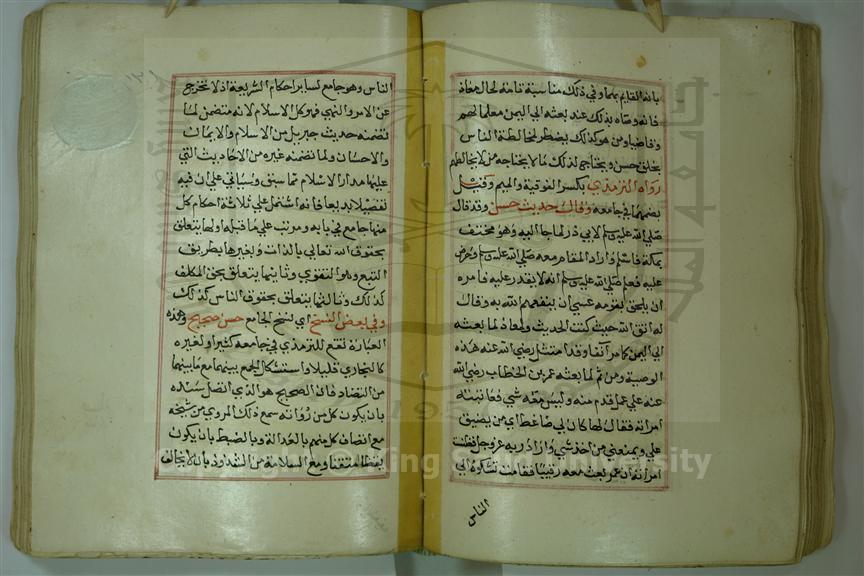 بانه القايم بهما وفي ذلك مناسبة تامة لحال معاذ
فانه وصاه بذلك عند بعثه الي اليمن معلما لهم
وقاضيا ومن هو كذلك يضطر لمخالطة الناس
بخلق حسن ويحتاج لذلك ما لا يحتاجه من لا يخالطهم
رواه الترمذي بكسر الفوقية والميم وقيل
بضمهما في جامعه وقال حديث حسن وقد قال
صلي الله عليه وسلم لابي ذر لما جا اليه وهو مختف
بمكة فاسلم واراد المقام معه صلي الله عليه وسلم وحرص
عليه فعلم صلي الله عليه وسلم انه لا يقدر عليه فامره
ان يلحق بقومه عسي ان ينفعهم الله به وقال
له اتق الله حيث كنت الحديث ولمعاذ لما بعثه
الي اليمن كما مر آنفا وقد امتثل رضي الله عنه هذه
الوصية ومن ثم لما بعثه عمر بن الخطاب رضي الله
عنه علي عمل قدم منه وليس معه شي فعاتبته
امراته فقال لها كان لي ضاغط اي من يضيق
علي ويمنعني من اخذ شي واراد ربه عز وجل فظنت
امراته ان عمر بعث معه رقيبا فقامت تشكوه الي
الناس
الناس وهو جامع لساير احكام الشريعة اذ لا تخرج
عن الامر والنهي فهو كل الاسلام لانه متضمن لما
تضمنه حديث جبريل من الاسلام والايمان
والاحسان ولما تضمنه غيره من الاحاديث التي
عليها مدار الاسلام مما سبق وسياتي علي ان فيه
تفصيلا بديعا فانه اشتمل علي ثلاثة احكام كل
منها جامع في بابه ومرتب علي ما قبله اولها يتعلق
بحقوق الله تعالي بالذات وبغيرها بطريق
التبع وهو التقوي وثانيها يتعلق بحق المكلف
كذلك وثالثها يتعلق بحقوق الناس كذلك
وفي بعض النسخ اي لنسخ الجامع حسن صحيح وهذه
العبارة تقع للترمذي في جامعه كثيرا ولغيره
كالبخاري قليلا واستشكل الجمع بينهما مع ما بينهما
من التضاد فان الصحيح هو الذي اتصل سنده
بان يكون كل من رواته سمع ذلك المروي من شيخه
مع اتصاف كل منهم بالعدالة وبالضبط بان يكون
يقظا متقنا ومع السلامة من الشذوذ بان لا يخالف
Copyright © King Saud University
1957